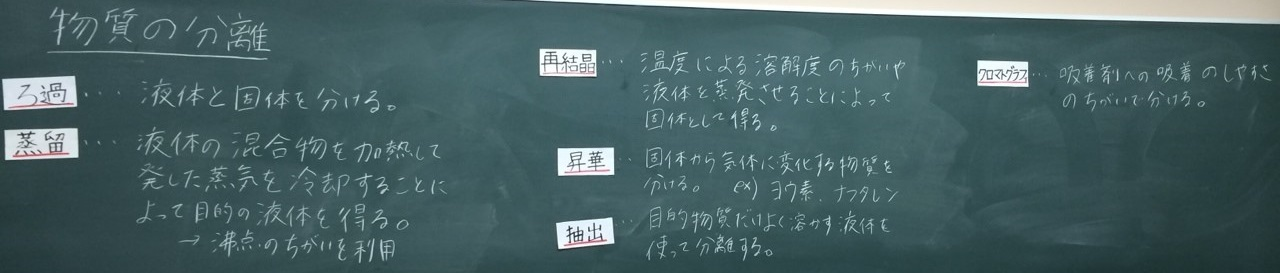 物質の分離
ろ過 … 液体と固体を分ける。
蒸留 … 液体の混合物を加熱して
発した蒸気を冷却することに
よって目的の液体を得る。
→ 沸点のちがいを利用
再結晶 … 温度による溶解度のちがいや
液体を蒸発させることによって
固体として得る。
昇華 … 固体から気体に変化する物質を
分ける。 ex) ヨウ素、ナフタレン
抽出 … 目的物質だけよく溶かす液体を
使って分離する。
クロマトグラフィ … 吸着剤への吸着のしやすさ
のちがいで分ける。